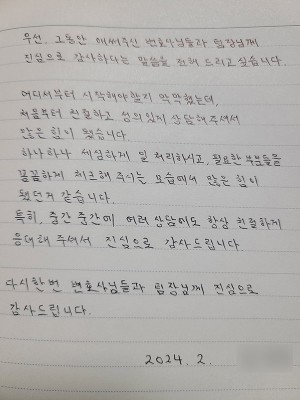 우선, 그동안 애써주신 변호사님들과 팀장님께
진심으로 감사하다는 말씀을 전해 드리고 싶습니다.
어디서부터 시작해야할지 막막했는데,
처음부터 친절하고 성의있게 상담해 주셔서
많은 힘이 됐습니다.
하나하나 세심하게 일 처리하시고, 필요한 부분들을
꼼꼼하게 체크해 주시는 모습에서 많은 힘이
됐던거 같습니다.
특히, 중간 중간에 여러 상담에도 항상 친절하게
응대해 주셔서 진심으로 감사드립니다.
다시한번 변호사님들과 팀장님께 진심으로
감사드립니다.
2024. 2.